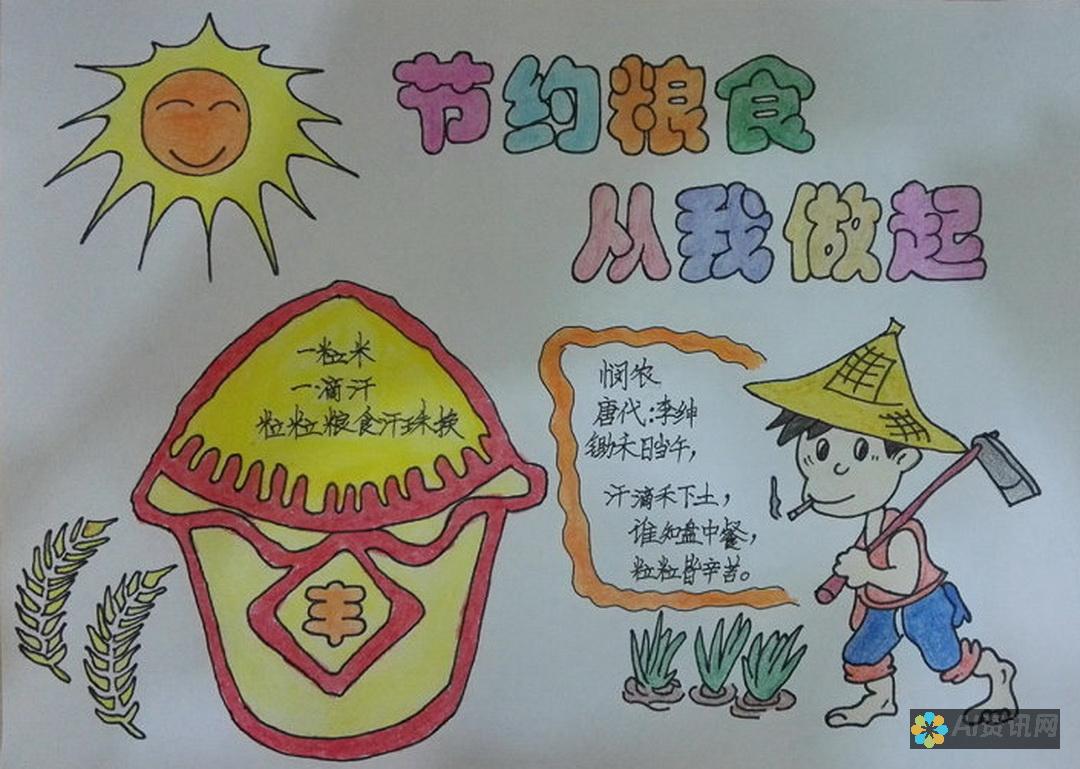 节约粮食
从我做起
一粒米
一滴汗
粒粒粮食汗珠换
丰
悯农
唐代:李绅
锄禾日当午,
汗滴禾下土,
谁知盘中餐,
粒粒皆辛苦。
AI资讯网